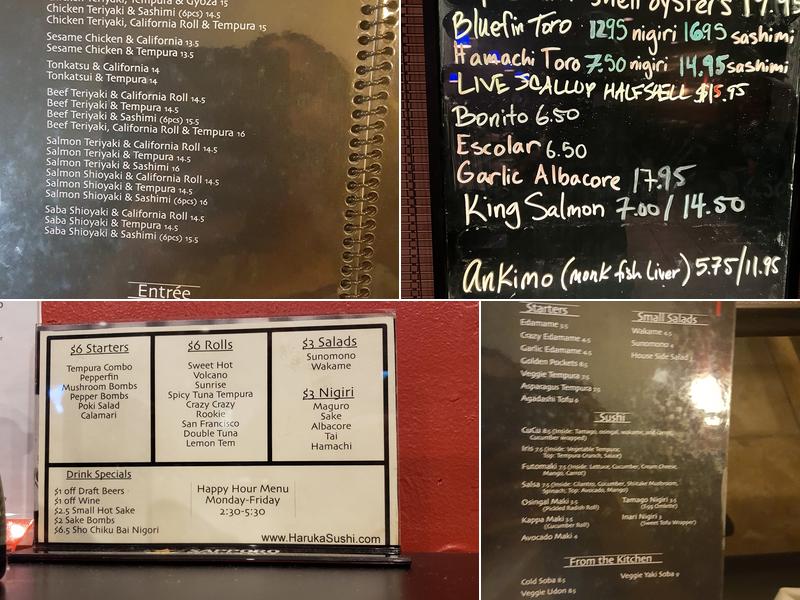 Chicken Teriyaki, Tempura & Gyoza 15
Chicken Teriyaki & Sashimi (6pcs) 14.5
Chicken Teriyaki, California Roll & Tempura 15
Sesame Chicken & California 13.5
Sesame Chicken & Tempura 13.5
Tonkatsu & California 14
Tonkatsui & Tempura 14
Beef Teriyaki & California Roll 14.5
Beef Teriyaki & Tempura 14.5
Beef Teriyaki & Sashimi (6pcs) 15.5
Beef Teriyaki, California Roll & Tempura 16
Salmon Teriyaki & California Roll 14.5
Salmon Teriyaki & Tempura 14.5
Salmon Teriyaki & Sashimi 16
Salmon Shioyaki & California Roll 14.5
Salmon Shioyaki & Tempura 14.5
Salmon Shioyaki & Sashimi (6pcs) 16
Saba Shioyaki & California Roll 14.5
Saba Shioyaki & Tempura 14.5
Saba Shioyaki & Sashimi (6pcs) 15.5
Entrée
shell oysters 17.95
Bluefin Toro 12.95 nigiri 16.95 sashimi
Hamachi Toro 7.50 nigiri 14.95 sashimi
LIVE SCALLOP HALFSHELL $15.95
Bonito 6.50
Escolar 6.50
Garlic Albacore 17.95
King Salmon 7.00/14.50
Ankimo (monk fish liver) 5.75/11.95
$6 Starters
Tempura Combo
Pepperfin
Mushroom Bombs
Pepper Bombs
Poki Salad
Calamari
$6 Rolls
Sweet Hot
Volcano
Sunrise
Spicy Tuna Tempura
Crazy Crazy
Rookie
San Francisco
Double Tuna
Lemon Tem
$3 Salads
Sunomono
Wakame
$3 Nigiri
Maguro
Sake
Albacore
Tai
Hamachi
Drink Specials
$1 off Draft Beers
$1 off Wine
$2.5 Small Hot Sake
$2 Sake Bombs
$6.5 Sho Chiku Bai Nigori
Happy Hour Menu
Monday-Friday
2:30-5:30
www.HarukaSushi.com
SAPPORO
Starters
Edamame 3.5
Crazy Edamame 4.5
Garlic Edamame 4.5
Golden Pockets 8.5
Veggie Tempura 7.5
Asparagus Tempura 7.5
Agadashi Tofu 6
Small Salads
Wakame 4.5
Sunomono 4
House Side Salad
Sushi
CuCu 8.5 (Inside: Tamago, osingal, wakame, and
Cucumber wrapped)
Iris 7.5 (Inside: Vegetable Tempura;
Top: Tempura Crunch, Sauce)
Futomaki 7.5 (Inside: Lettuce, Cucumber, Cream Cheese,
Mango, Carrot)
Salsa 7.5 (Inside: Cilantro, Cucumber, Shiitake Mushroom,
Spinach; Top: Avocado, Mango)
Osingal Maki 3.5
(Pickled Radish Roll)
Kappa Maki 3.5
(Cucumber Roll)
Avocado Maki
Tamago Nigiri 3.5
(Egg Omlette)
Inari Nigiri 3
(Sweet Tofu Wrapper)
From the Kitchen
Cold Soba 8.5
Veggie Udon 8.5
Veggie Yaki Soba 9